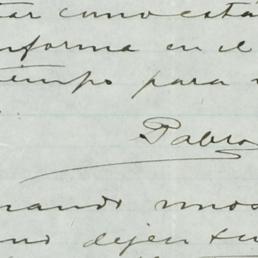 tar como está
nforma en el
tiempo para
Pablo
nando unos
no dejen